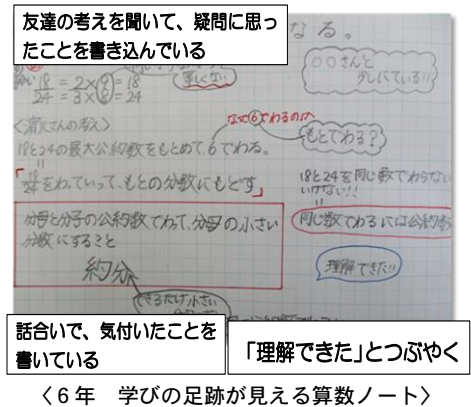 友達の考えを聞いて、疑問に思っ
たことを書き込んでいる
なる。
○○さんと
少しにている!!
18/24 = 2×6/3×6 = 18/24
なぜ6でわるのか
もとでわる?
18と24の最大公約数をもとめて、6でわる。
「18/24をわっていって、もとの分数にもどす」
18と24を同じ数でわらない
いけない!!
同じ数でわるには公約数
分母と分子の公約数でわって、分母の小さい
分数にすること
約分
理解できた!!
できるだけ小さい
話合いで、気付いたことを
書いている
「理解できた」とつぶやく
〈6年 学びの足跡が見える算数ノート〉